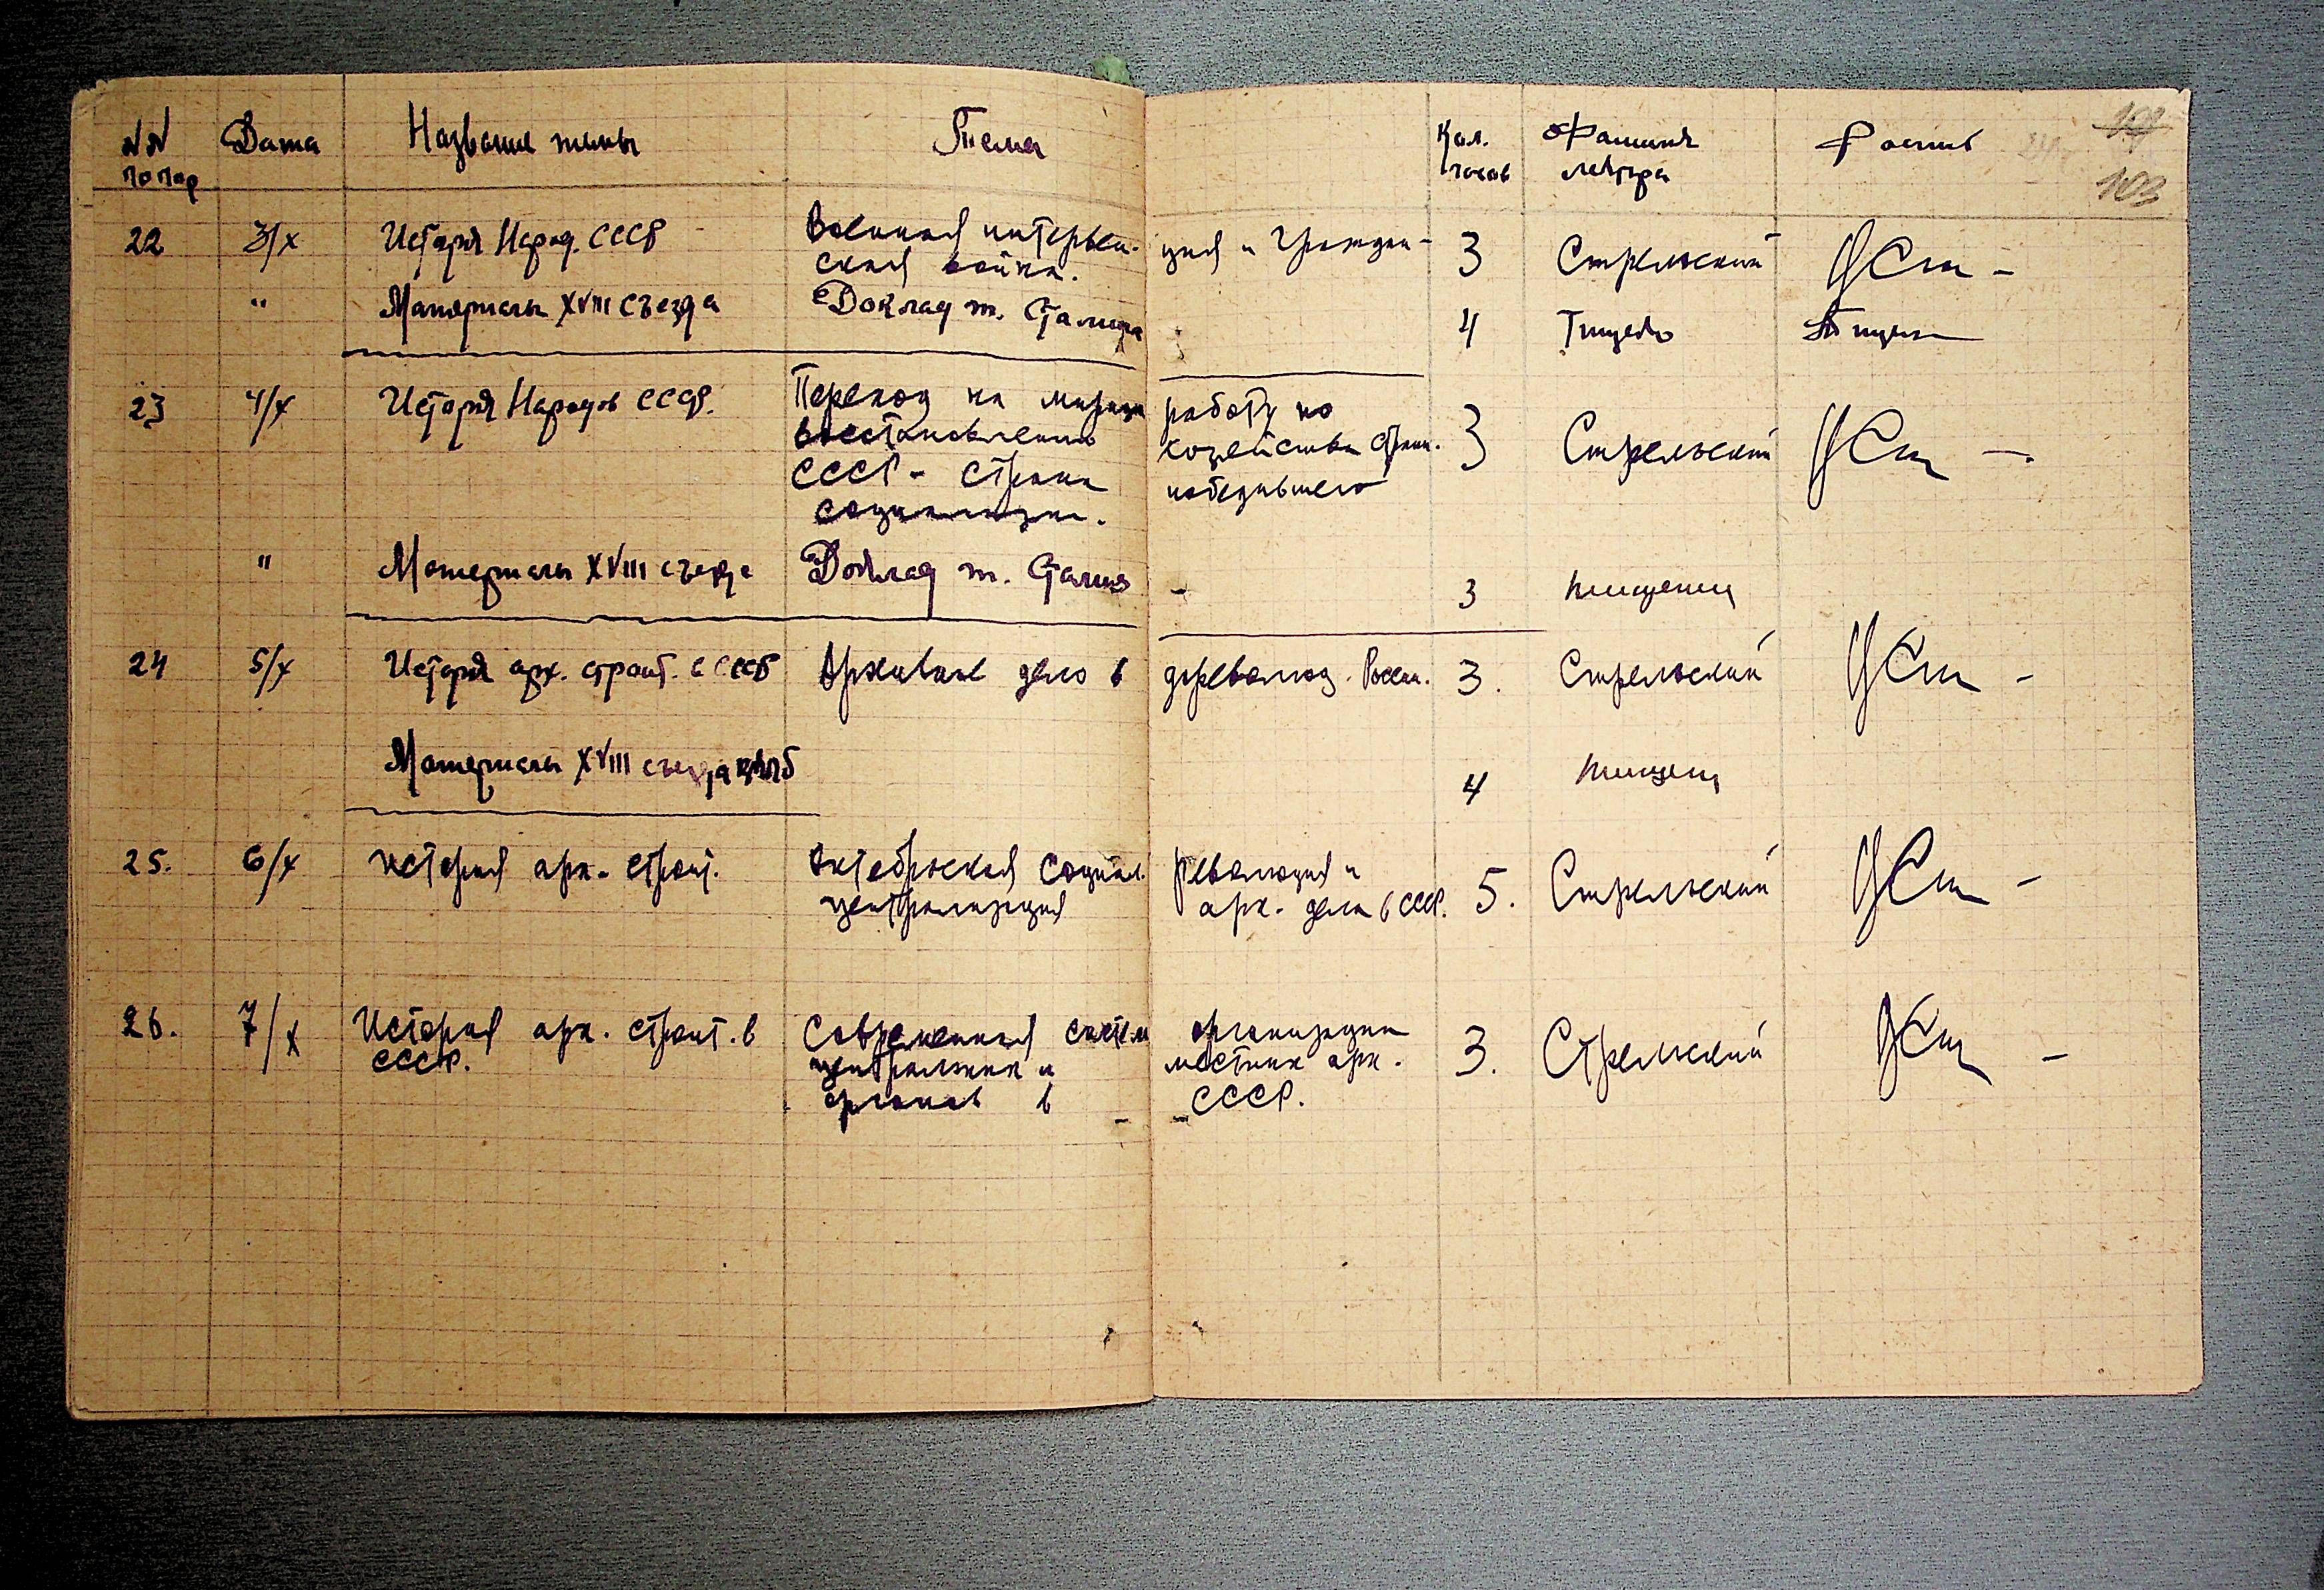 NN Дата Название темы Тема Кол. Фамилия Роспись 102
по пор часов лектора 103
22 3/X История Народ. СССР Военная интервен- ция и Граждан- 3 Стрельский
ская война.
" Материалы XVIII съезда Доклад т. Сталина 4
23 4/X История Народов СССР. Переход на мирную работу по 3 Стрельский
восстановлению хозяйства стран.
СССР - страна победившего
социализма.
" Материалы XVIII съезда Доклад т. Сталина 3
24 5/X История арх. строит. в СССР Архивное дело в дореволюц. России. 3. Стрельский
Материалы XVIII съезда ВКПб 4
25. 6/X история арх. строит. Октябрьская Социал. Революция и 5. Стрельский
централизация арх. дела в СССР.
26. 7/X История арх. строит. в Современная систем организации 3. Стрельский
СССР. центральных и местных арх.
органов в СССР.